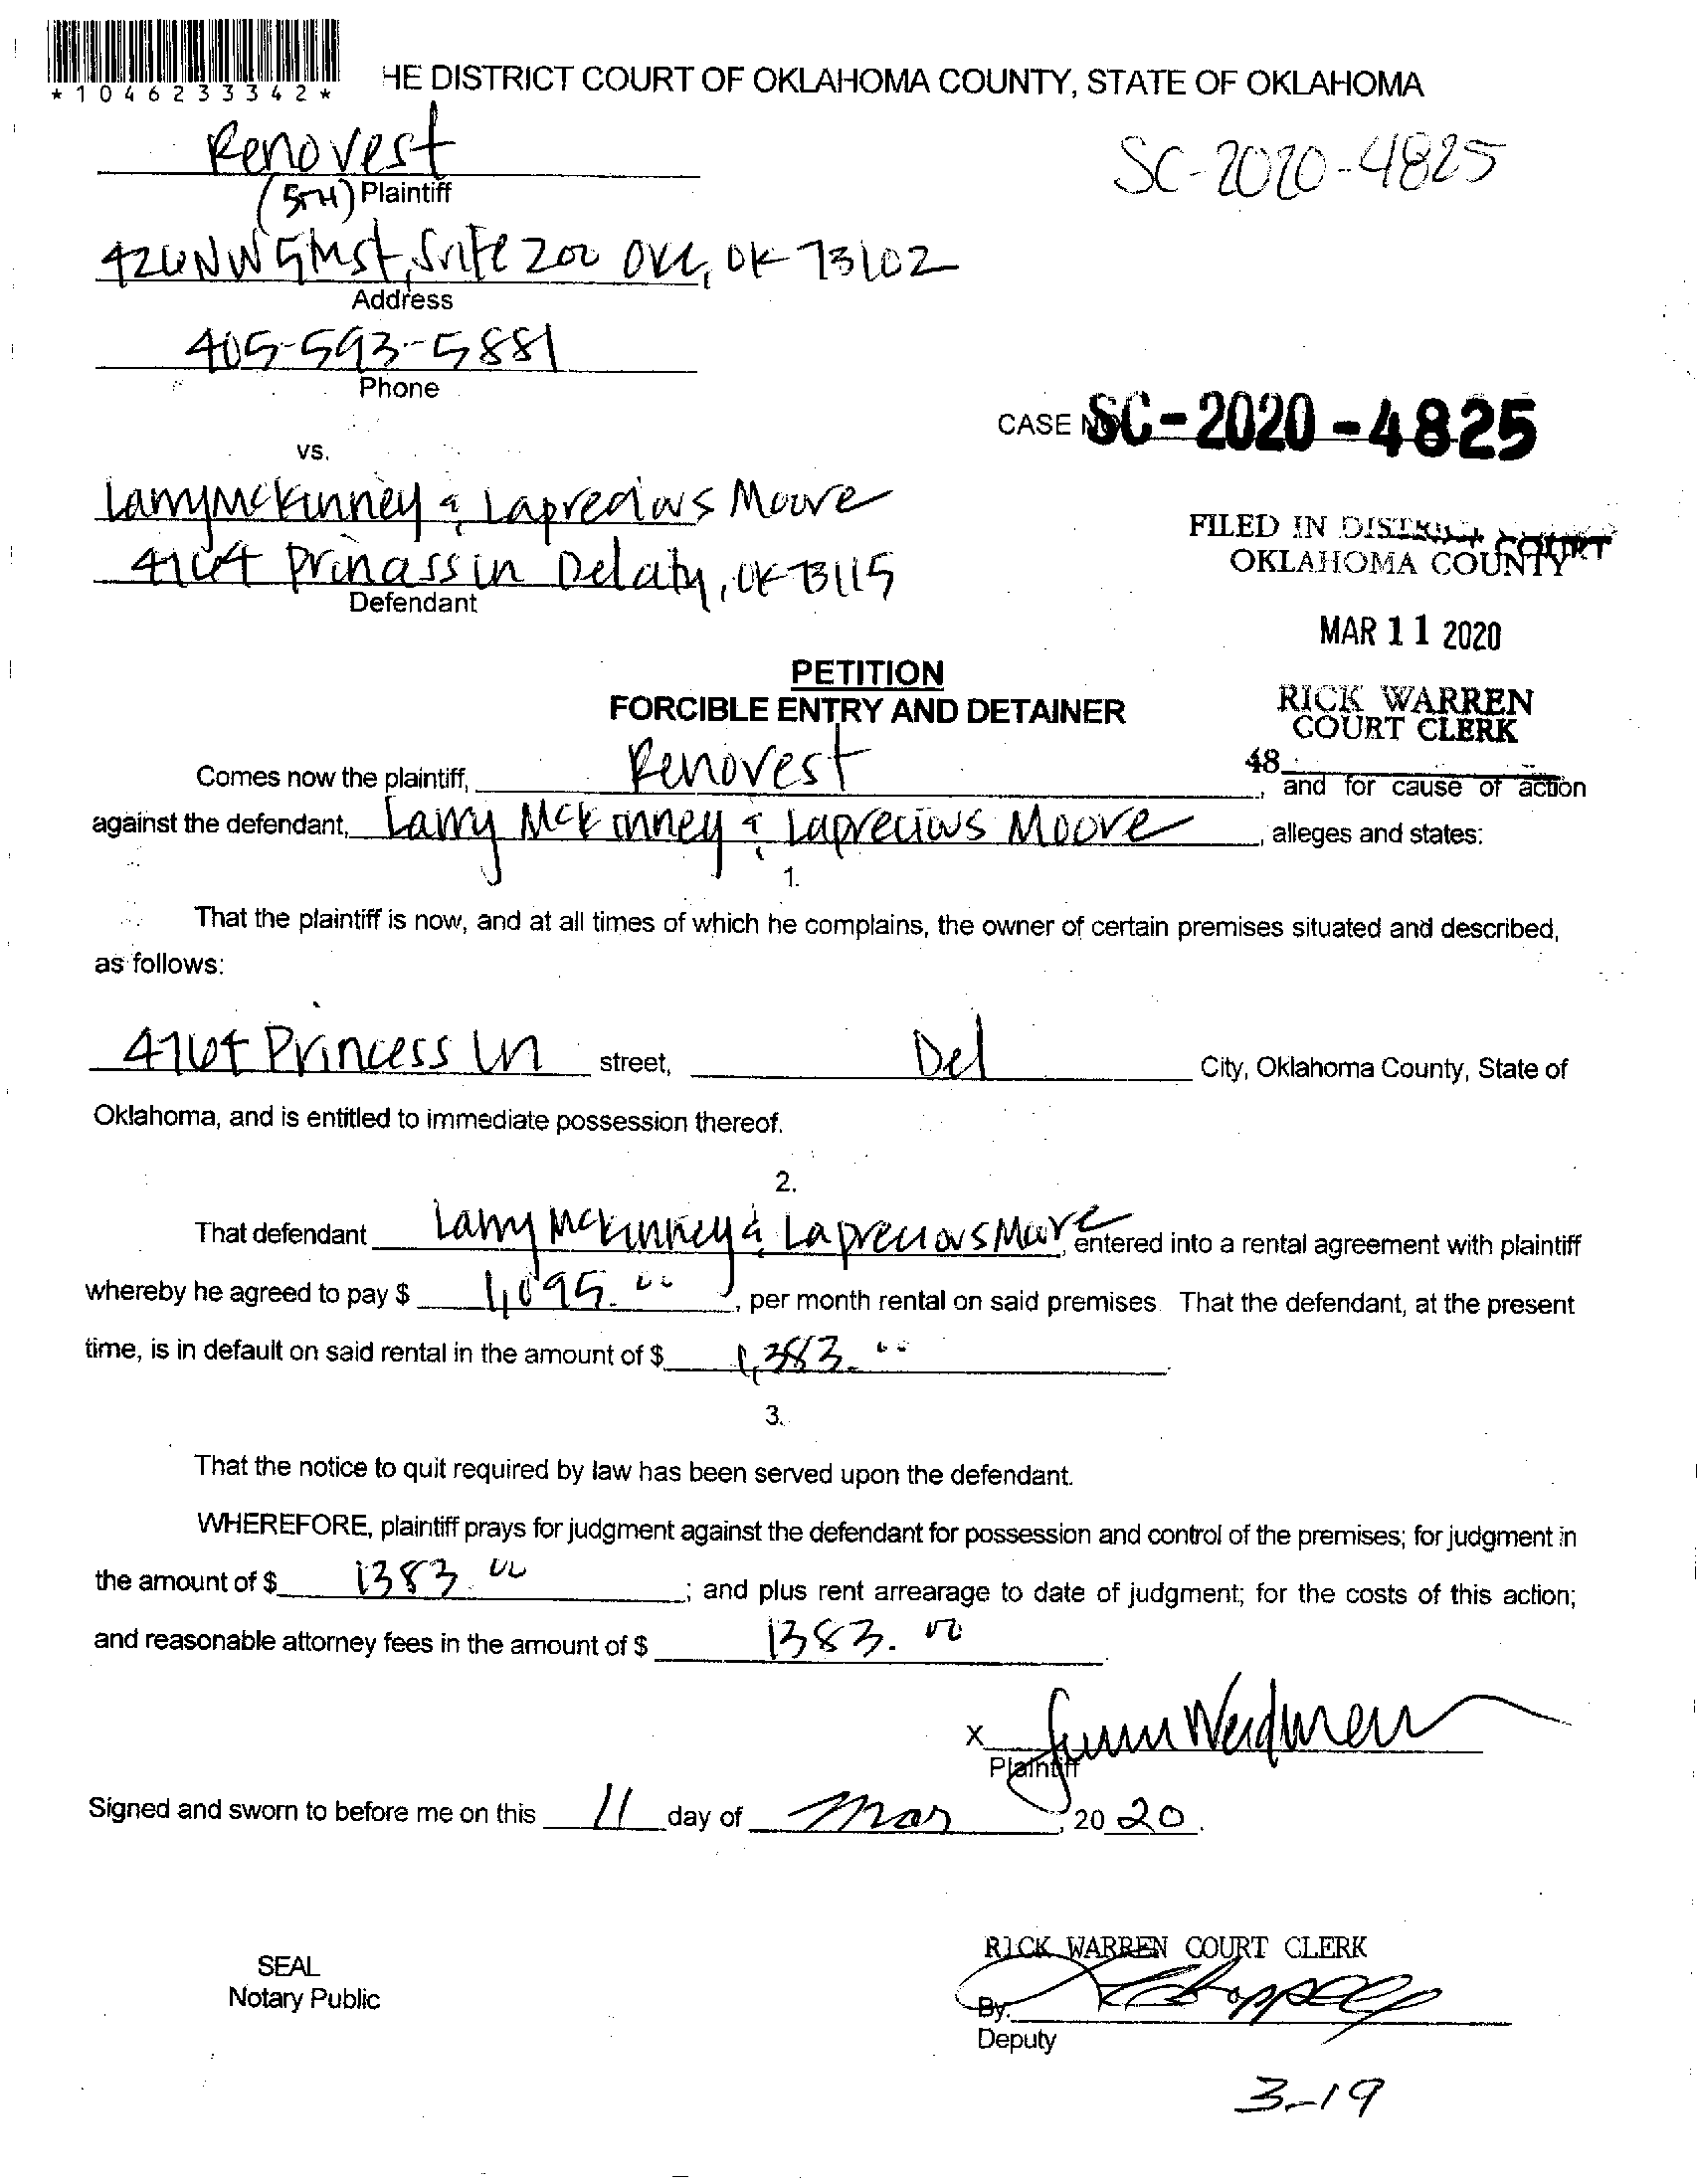 *1046233342*
HE DISTRICT COURT OF OKLAHOMA COUNTY, STATE OF OKLAHOMA
Renovest
SC-2020-4825
(5TH) Plaintiff
NW 5th St, Suite 200 OKC, OK 73102
Address
405-593-5881
Phone
CASE NO. SC-2020-4825
vs.
Larry McKinney & Laprecious Moore
Princess Ln Del City, OK 73115
Defendant
FILED IN DISTRICT COURT
OKLAHOMA COUNTY
MAR 11 2020
PETITION
FORCIBLE ENTRY AND DETAINER
RICK WARREN
COURT CLERK
48
Comes now the plaintiff, Renovest, and for cause of action
against the defendant, Larry McKinney & Laprecious Moore, alleges and states:
1.
That the plaintiff is now, and at all times of which he complains, the owner of certain premises situated and described,
as follows:
Princess Ln street, Del City, Oklahoma County, State of
Oklahoma, and is entitled to immediate possession thereof.
2.
That defendant Larry McKinney & Laprecious Moore, entered into a rental agreement with plaintiff
whereby he agreed to pay $ 1,095.00, per month rental on said premises. That the defendant, at the present
time, is in default on said rental in the amount of $ 1,383.00.
3.
That the notice to quit required by law has been served upon the defendant.
WHEREFORE, plaintiff prays for judgment against the defendant for possession and control of the premises; for judgment in
the amount of $ 1383.00; and plus rent arrearage to date of judgment; for the costs of this action;
and reasonable attorney fees in the amount of $ 1383.00.
X
Plaintiff
Signed and sworn to before me on this 11 day of Mar, 2020.
RICK WARREN COURT CLERK
SEAL
Notary Public
By:
Deputy
3-19